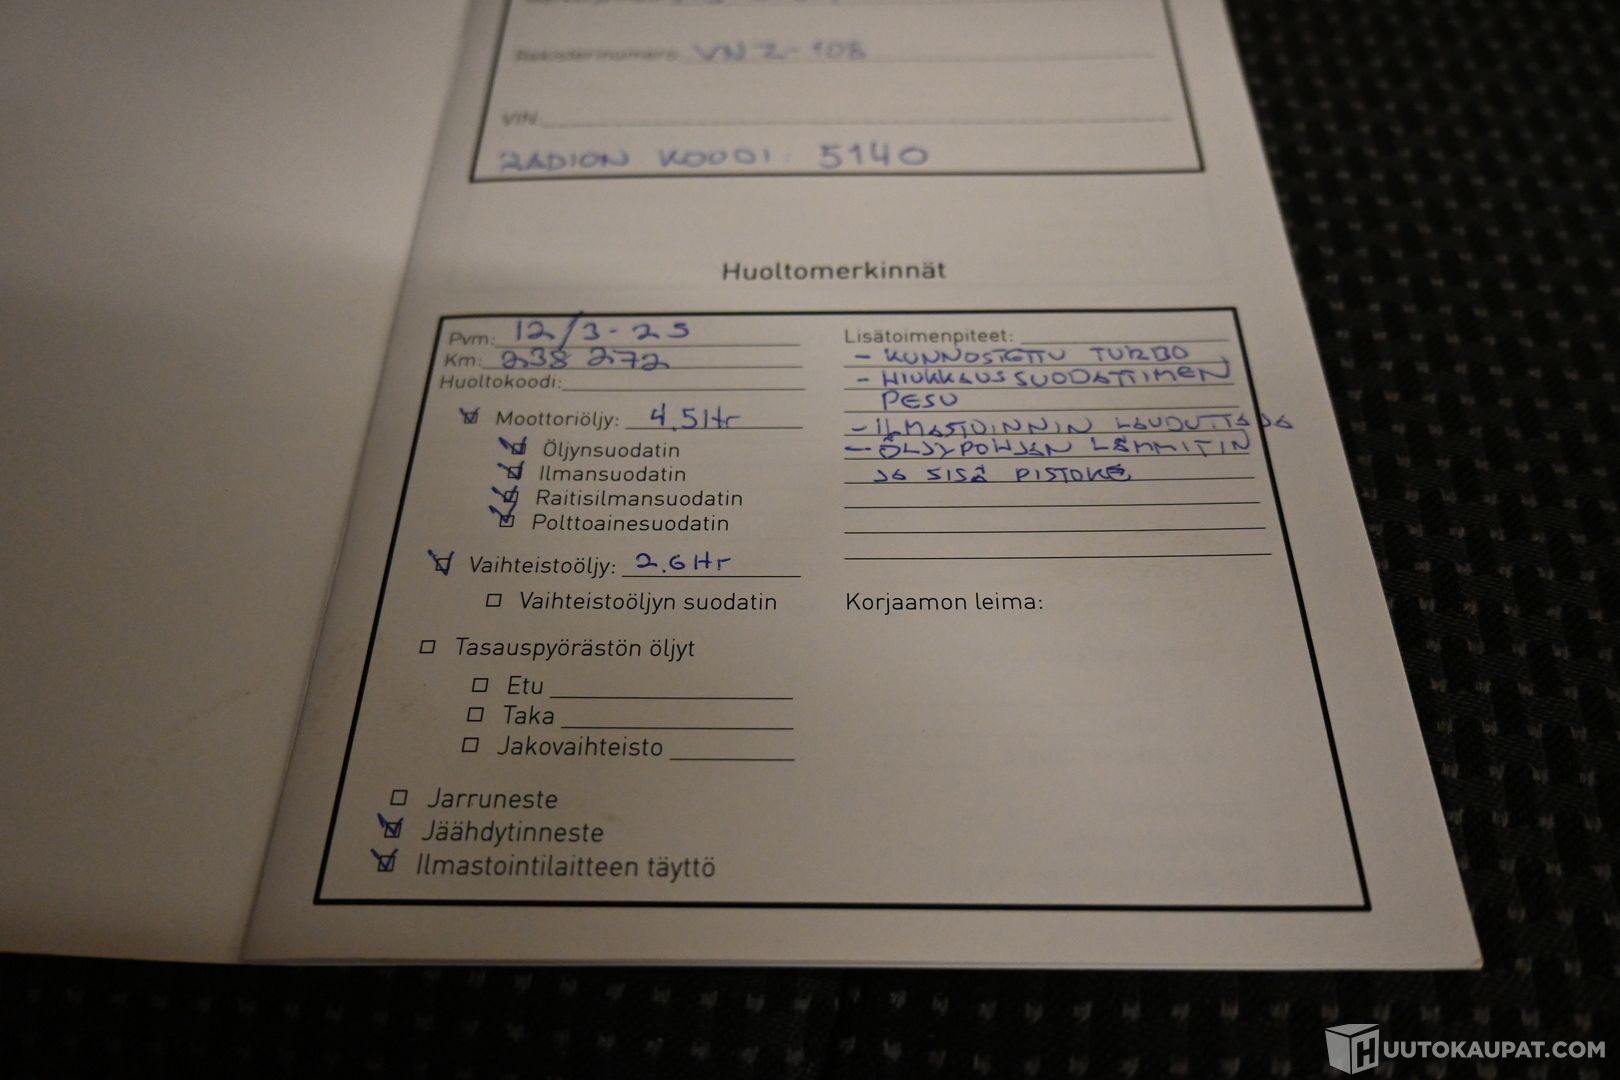 Rekisterinumero: VNZ-108
VIN
RADION KOODI: 5140
Huoltomerkinnät
Pvm: 12/3-25
Km: 238 272
Huoltokoodi:
Moottoriöljy: 4.5 ltr
Öljynsuodatin
Ilmansuodatin
Raitisilmansuodatin
Polttoainesuodatin
Vaihteistoöljy: 2.6 ltr
Vaihteistoöljyn suodatin
Tasauspyörästön öljyt
Etu
Taka
Jakovaihteisto
Jarruneste
Jäähdytinneste
Ilmastointilaitteen täyttö
Lisätoimenpiteet:
- KUNNOSTETTU TURBO
- HIUKKAUSSUODATTIMEN
PESU
- ILMASTOINNIN LAUDUTTAJA
- ÖLJYPOHJAN LÄMMITIN
JA SISÄ PISTOKE
Korjaamon leima:
HUUTOKAUPAT.COM